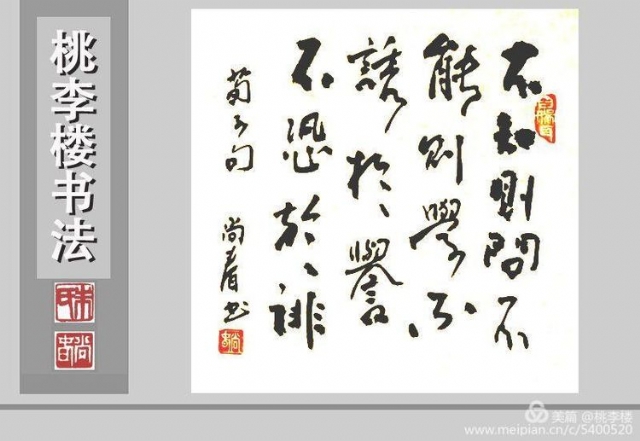 桃李楼书法
不知則問不
能則學不
誘於譽
不恐於誹
荀子句
尚书
美篇 @桃李楼
www.meipian.cn/c/5400520